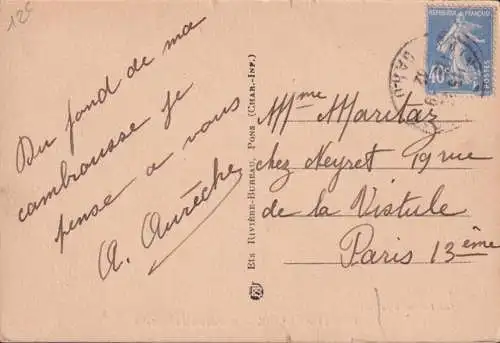 12€
Du fond de ma
cambrousse je
pense a vous
A. Aurèche
Ets Rivière-Bureau, Pons (Char.-Inf.)
REPUBLIQUE FRANÇAISE
40c
POSTES
Mme Maritaz
chez Neyret 19 rue
de la Vistule
Paris 13ème